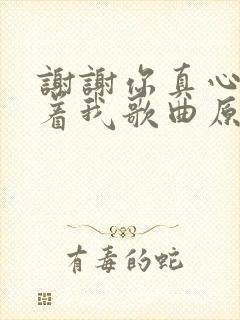 謝謝你真心
着我歌曲原
有毒的蛇